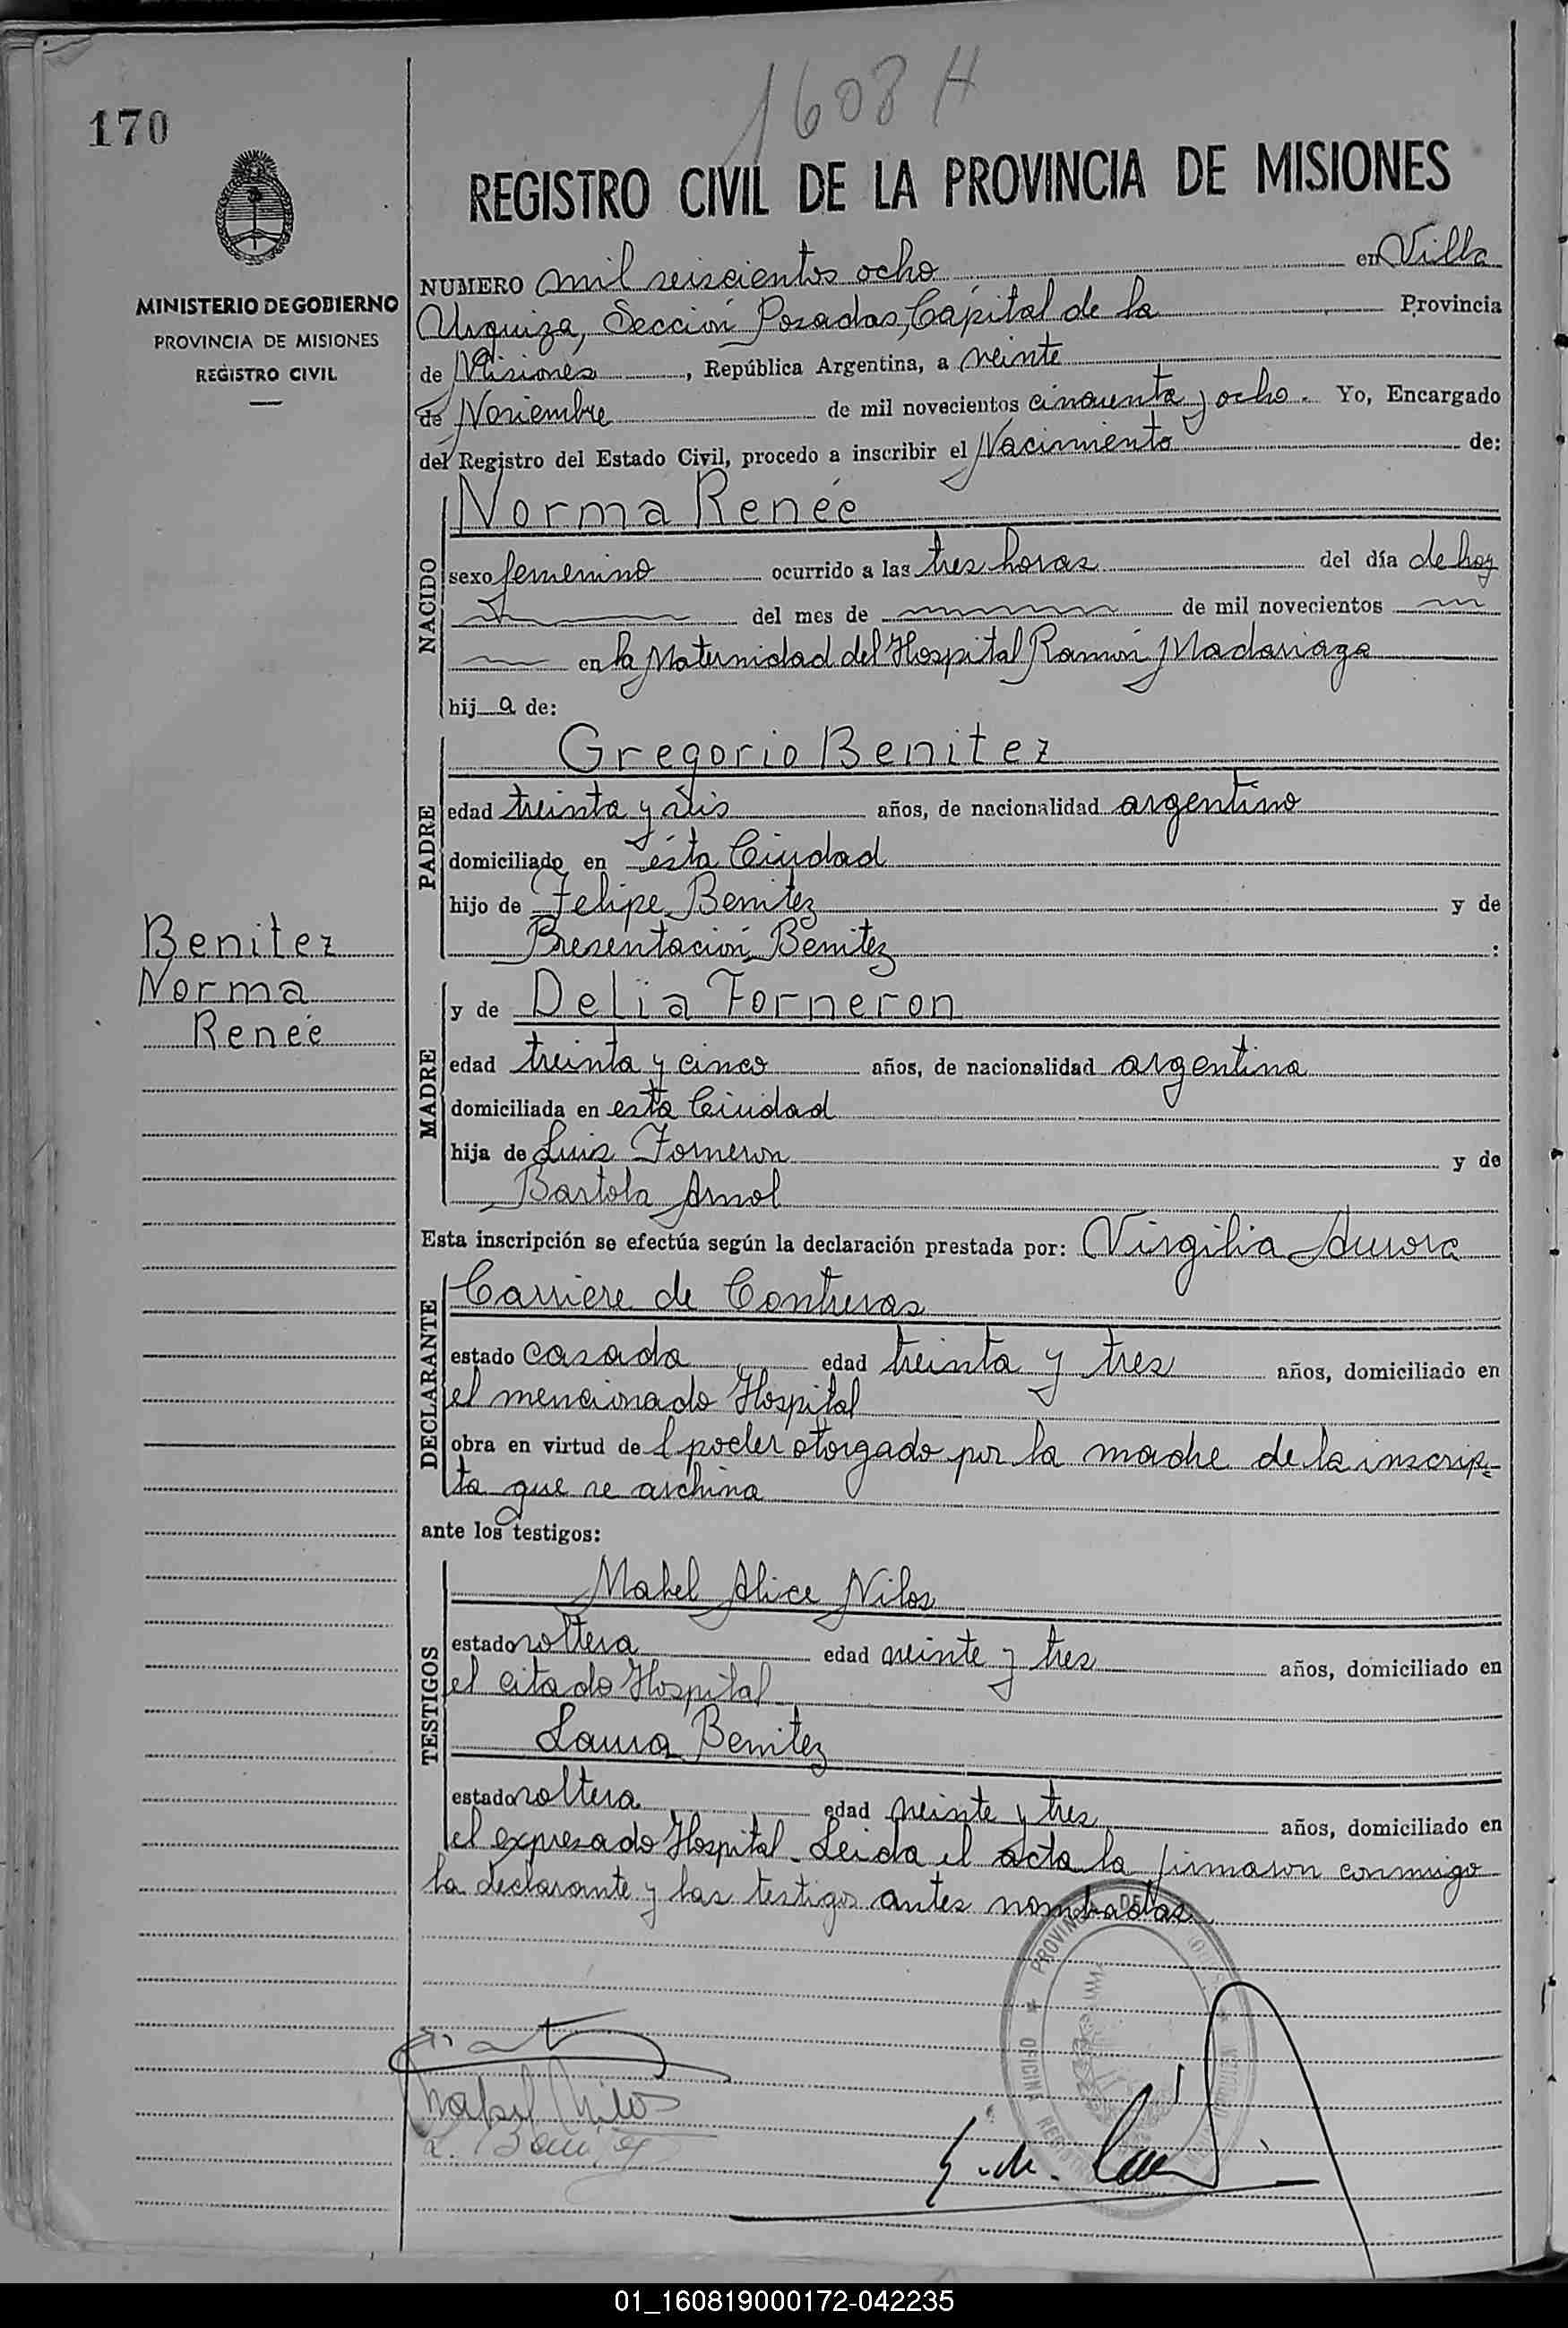 1608 H
170
REGISTRO CIVIL DE LA PROVINCIA DE MISIONES
MINISTERIO DE GOBIERNO
PROVINCIA DE MISIONES
REGISTRO CIVIL
NUMERO mil seiscientos ocho en Villa
Urquiza, Sección Posadas, Cápital de la Provincia
de Misiones, República Argentina, a veinte
de Noviembre de mil novecientos cincuenta y ocho. Yo, Encargado
del Registro del Estado Civil, procedo a inscribir el Nacimiento de:
NACIDO
Norma Renée
sexo femenino ocurrido a las tres horas del día de hoy
del mes de de mil novecientos
en la Maternidad del Hospital Ramón Madariaga
hij a de:
PADRE
Gregorio Benitez
edad treinta y seis años, de nacionalidad argentino
domiciliado en ésta Ciudad
hijo de Felipe Benitez y de
Presentación Benitez :
Benitez
Norma
Renée
MADRE
y de Delia Forneron
edad treinta y cinco años, de nacionalidad argentina
domiciliada en esta Ciudad
hija de Luis Forneron y de
Bartola Arnol
Esta inscripción se efectúa según la declaración prestada por: Virgilia Aurora
DECLARANTE
Carriere de Contreras
estado casada edad treinta y tres años, domiciliado en
el mencionado Hospital
obra en virtud de l poder otorgado por la madre de la inscrip-
ta que se archiva
ante los testigos:
TESTIGOS
Mabel Alice Nilos
estado soltera edad veinte y tres años, domiciliado en
el citado Hospital
Laura Benitez
estado soltera edad veinte y tres años, domiciliado en
el expresado Hospital. Leida el acta la firmaron conmigo
la declarante y las testigos antes nombradas
PROVINCIA DE
OFICINA
Mabel Nilos
L. Benitez
01_160819000172-042235